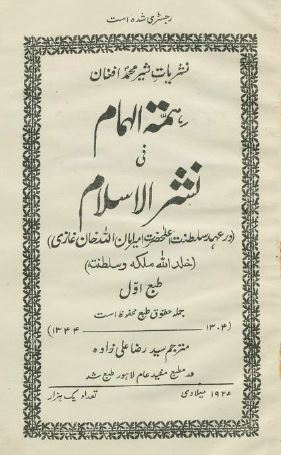 رجسٹری شده است
نشریات شیر محمد افغان
ہمة الہمام
فی
نشر الاسلام
(در عہد سلطنت اعلیحضرت امیر امان اللہ خان غازی)
(خلد الله ملکه وسلطنة)
طبع اوّل
جملہ حقوق طبع محفوظ است
(۱۳۰۴) (۱۳۴۴)
مترجم سید رضا علی زاده
در مطبع مفید عام لاہور طبع شد
میلادی تعداد یک ہزار